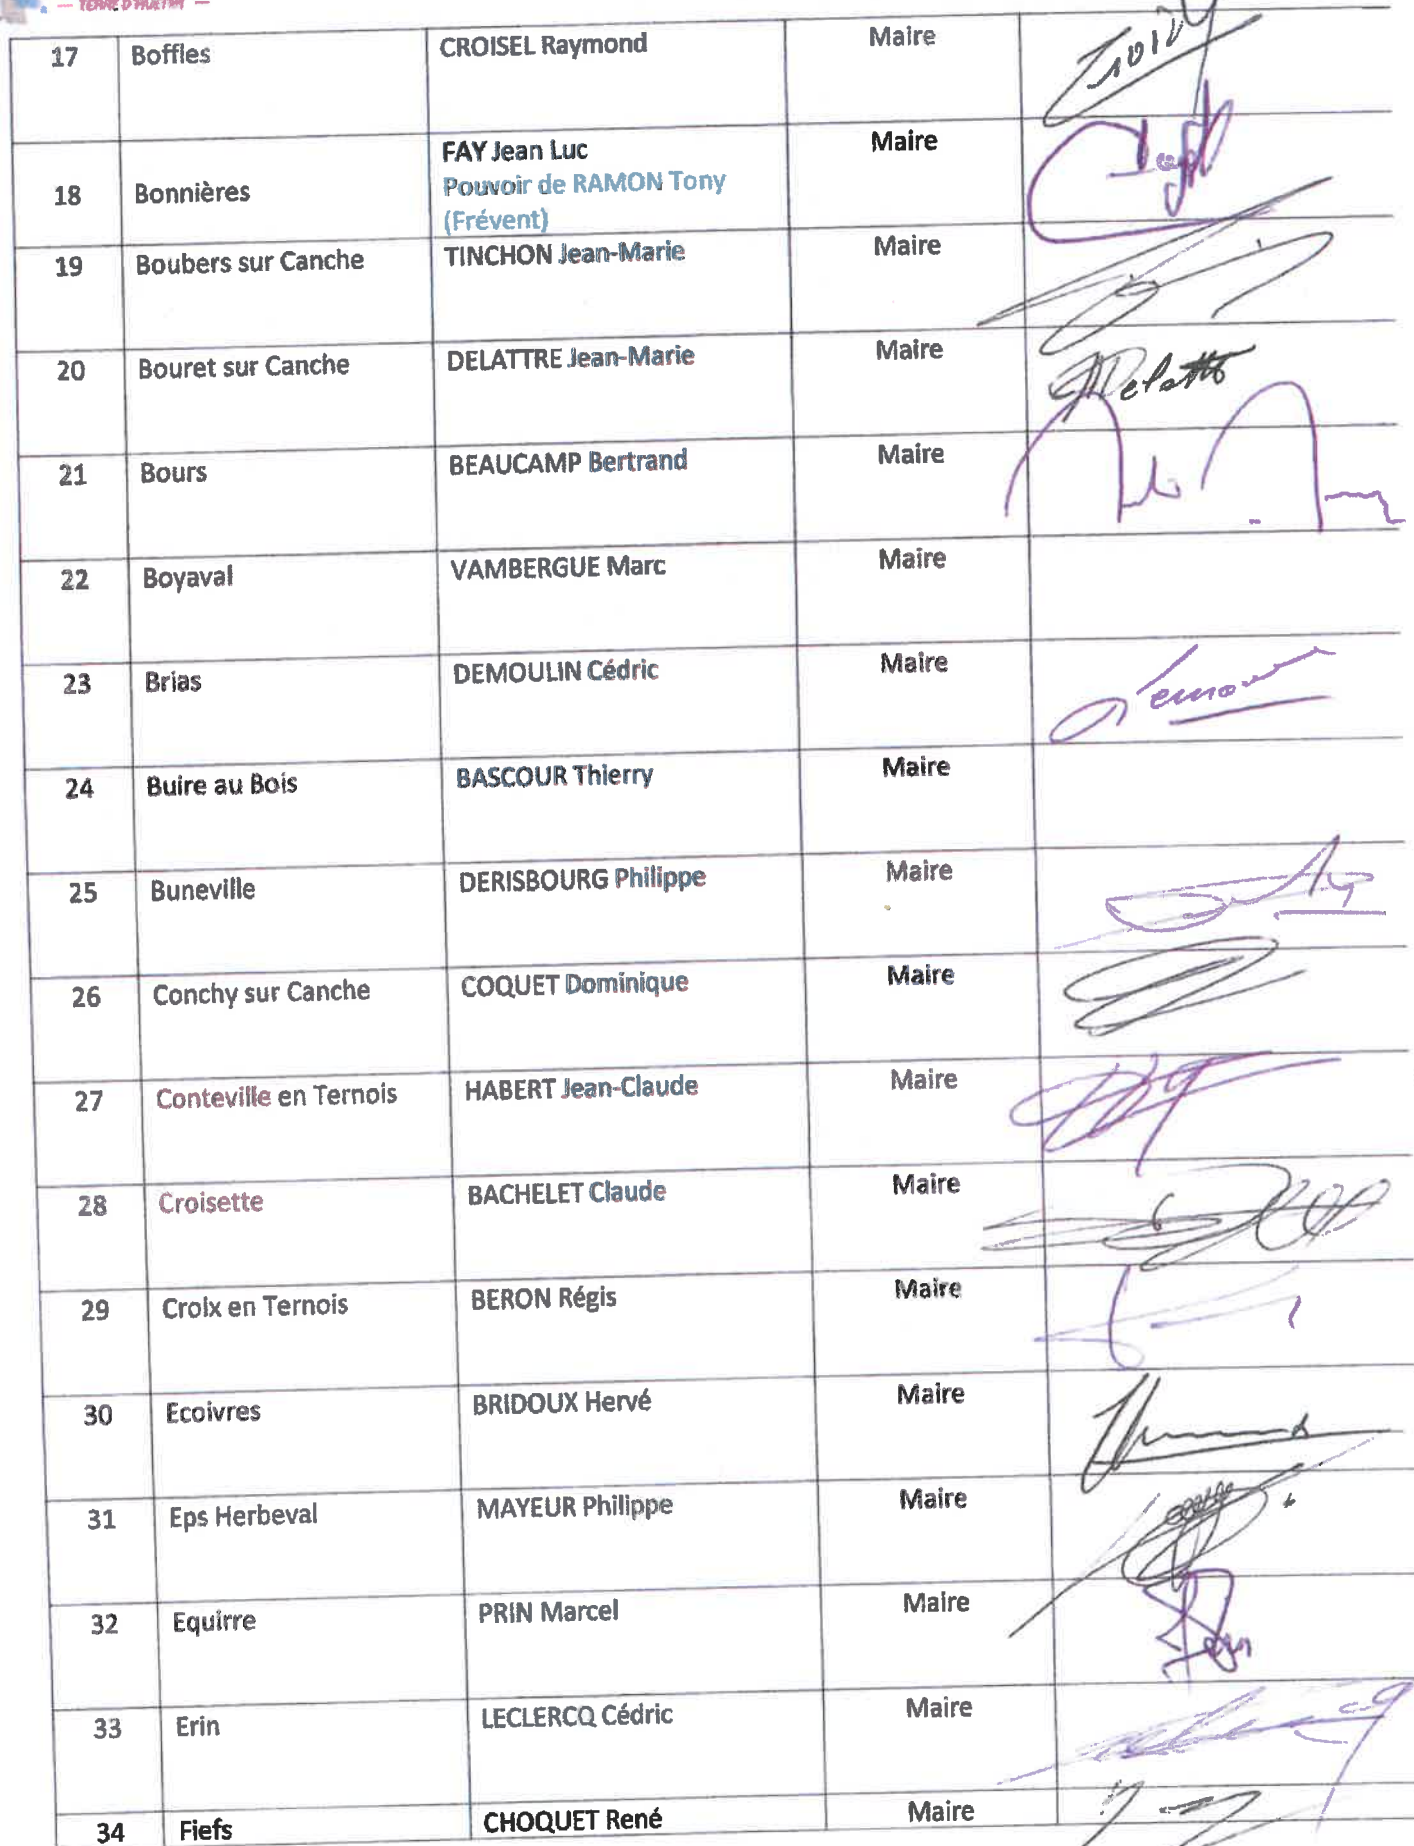 — TERRE D'AVENIR —
17 Boffles CROISEL Raymond Maire
18 Bonnières FAY Jean Luc Maire
Pouvoir de RAMON Tony
(Frévent)
19 Boubers sur Canche TINCHON Jean-Marie Maire
20 Bouret sur Canche DELATTRE Jean-Marie Maire
21 Bours BEAUCAMP Bertrand Maire
22 Boyaval VAMBERGUE Marc Maire
23 Brias DEMOULIN Cédric Maire
24 Buire au Bois BASCOUR Thierry Maire
25 Buneville DERISBOURG Philippe Maire
26 Conchy sur Canche COQUET Dominique Maire
27 Conteville en Ternois HABERT Jean-Claude Maire
28 Croisette BACHELET Claude Maire
29 Croix en Ternois BERON Régis Maire
30 Ecoivres BRIDOUX Hervé Maire
31 Eps Herbeval MAYEUR Philippe Maire
32 Equirre PRIN Marcel Maire
33 Erin LECLERCQ Cédric Maire
34 Fiefs CHOQUET René Maire